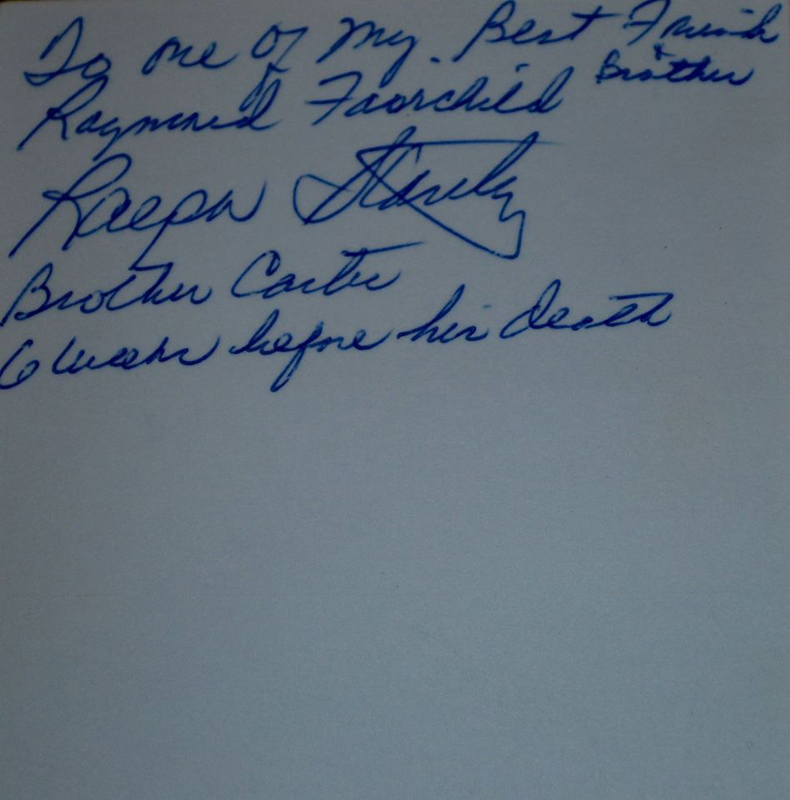 To one of My. Best Friends
& Brother
Raymond Fairchild
Ralph Stanley
Brother Carter
6 weeks before his death